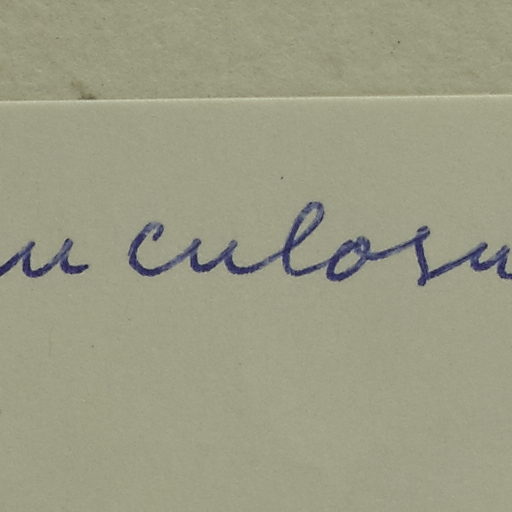 u culosu